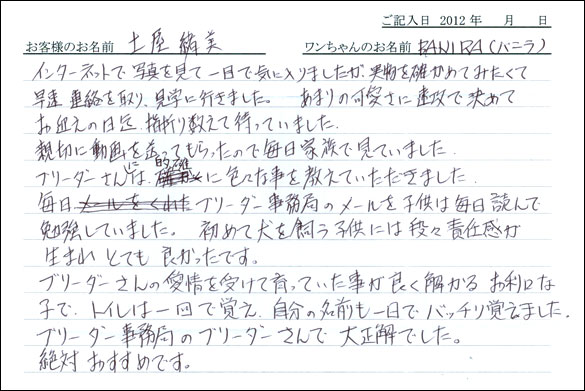 ご記入日 2012 年 月 日
お客様のお名前 土屋 絹美 ワンちゃんのお名前 BANIRA(バニラ)
インターネットで写真を見て一目で気に入りましたが、実物を確かめてみたくて
早速 連絡を取り、見学に行きました。 あまりの可愛さに速攻で決めて
お迎えの日迄、指折り数えて待っていました。
親切に動画を送ってもらったので毎日家族で見ていました。
ブリーダーさんには、的確に色々な事を教えていただきました。
毎日 メールをくれた ブリーダー事務局のメールを子供は毎日読んで
勉強していました。 初めて犬を飼う子供には段々責任感が
生まれ とても 良かったです。
ブリーダーさんの愛情を受けて育っていた事が良く解かる お利口な
子で、トイレは一回で覚え、自分の名前も一日でバッチリ覚えました。
ブリーダー事務局のブリーダーさんで 大正解でした。
絶対 おすすめです。